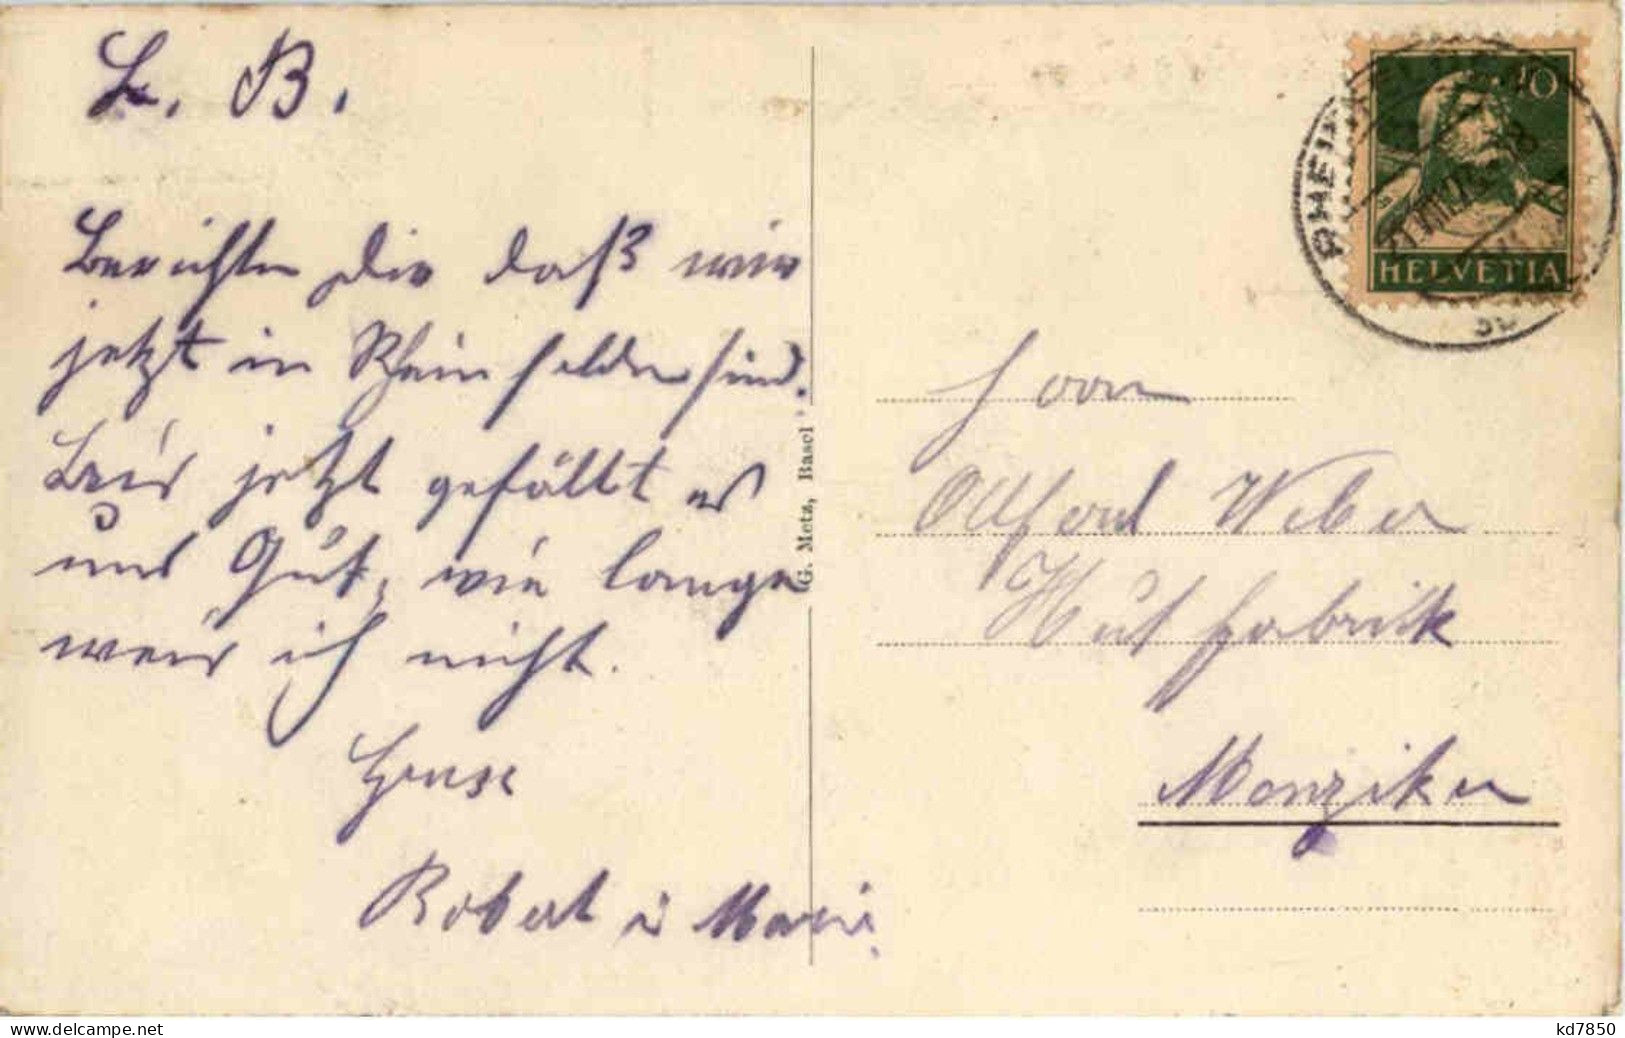 L. B.
Berichten Dir daß wir
jetzt in Rheinfelden sind.
Bis jetzt gefällt es
uns Gut, wie lange
weis ich nicht.
Grüse
Robert u Marie.
G. Metz, Basel
10
HELVETIA
RHEINFELDEN
Herrn
Alfred Weber
Hutfabrik
Menziken
www.delcampe.net
kd7850